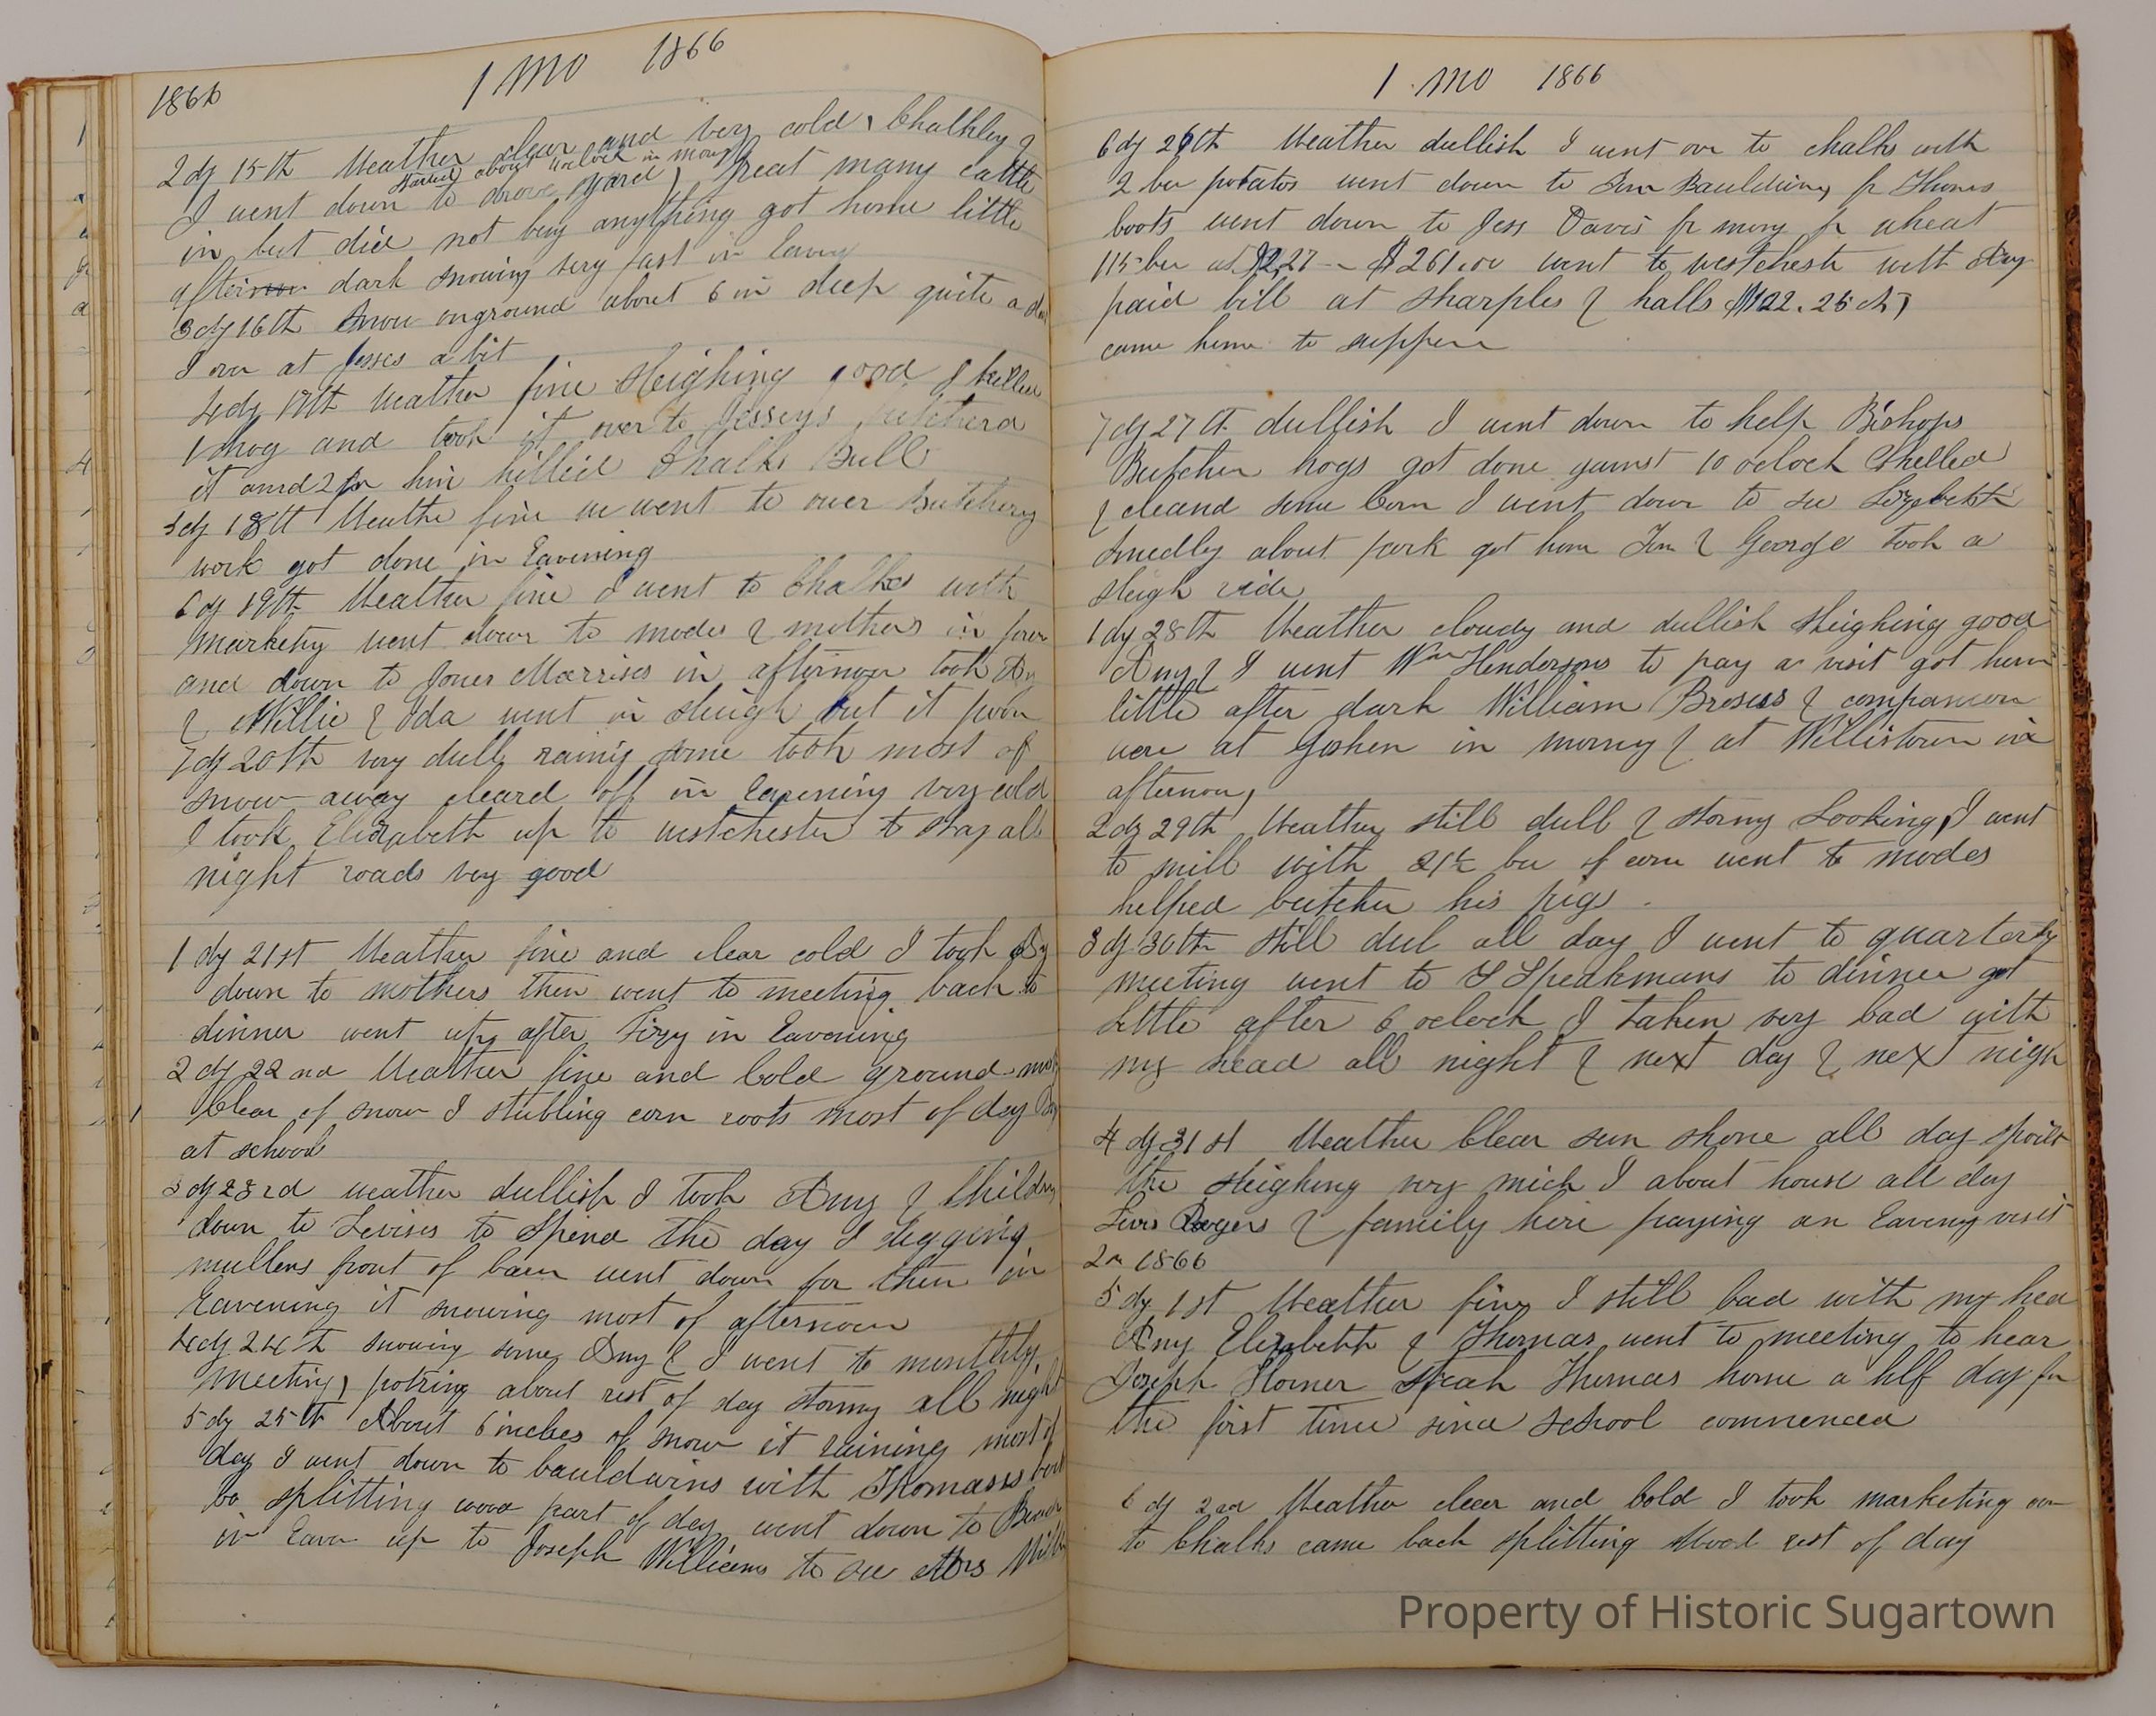 1866
1 mo 1866
2 dy 15th Weather clear and very cold, Chalkley &
Started about oclock in morng
I went down to drove yard, great many cattle
in but did not buy anything got home little
after dark snowing very fast in Eaveng
3 dy 16th Snow onground about 6 in deep quite a
I over at Jesses a bit
4 dy 17th Weather fine Sleighing good I killed
1 hog and took it over to Jesseys butcherd
it and 2 for him killed Chalks Bull
5 dy 18th Weathe fine we went to over Butchery
work got done in Eavening
6 dy 19th Weather fine I went to Chalks with
marketing went down to modes & mothers in
and down to Jones Morrises in afternoon took Amy
& Willie & Ida went in sleigh but it poor
7 dy 20th very dull rainig some took most of
snow away cleard off in Eavening very cold
I took Elizabeth up to westchester to stay all
night roads very good
1 dy 21st Weather fine and clear cold I took Amy
down to mothers then went to meeting back to
dinner went up after Lizy in Eavening
2 dy 22nd Weather fine and Cold ground
Clear of snow I stubling corn roots most of day
at school
3 dy 23rd weather dullish I took Amy & Childrn
down to Levises to Spend the day I digging
mullens front of barn went down for them in
Eavening it snowing most of afternoon
4 dy 24th snowing some Amy & I went to monthly
meeting, potring about rest of day stormy all night
5 dy 25th About 6 inches of snow it raining most of
day I went down to bauldwins with Thomases
splitting wood part of day went down to
in Eaven up to Joseph Williams to see
1 mo 1866
6 dy 26th Weather dullish I went over to chalks with
2 bu potatos went down to Bauldwins for Thomas
boots went down to Jess Davis for mony for wheat
115 bu at $2.27 - $261.00 went to westchestr with Amy
paid bill at Sharples & halls $122.25 cts,
came home to supper
7 dy 27th dullish I went down to help Bishops
Butcher hogs got done against 10 oclock Shelled
& cleand some Corn I went down to see Lizybeth
Smedly about pork got home & George took a
sleigh ride
1 dy 28th Weather cloudy and dullish Sleighing good
Amy & I went Wm Hendersons to pay a visit got home
little after dark William & companion
were at Goshen in morning & at Willistown in
afternoon,
2 dy 29th Weather still dull & stormy Looking, I went
to mill with 21½ bu of corn went to modes
helped butcher his pigs.
3 dy 30th still dul all day I went to quarterly
meeting went to Speakmans to dinner got
little after 6 oclock I taken very bad with
my head all night & next day & next nigh
4 dy 31st Weather Clear sun shone all day spoilt
the Sleighing very mich I about house all day
Rogers & family here paying an Eavening visit
2 m 1866
5 dy 1st Weather finy I still bad with my hea
Amy Elizabeth & Thomas went to meeting to hear
Joseph Horner Speak Thomas home a hlf day for
the first time since school commenced
6 dy 2nd Weather clear and Cold I took marketing over
to Chalks came back splitting Wood rest of day
Property of Historic Sugartown